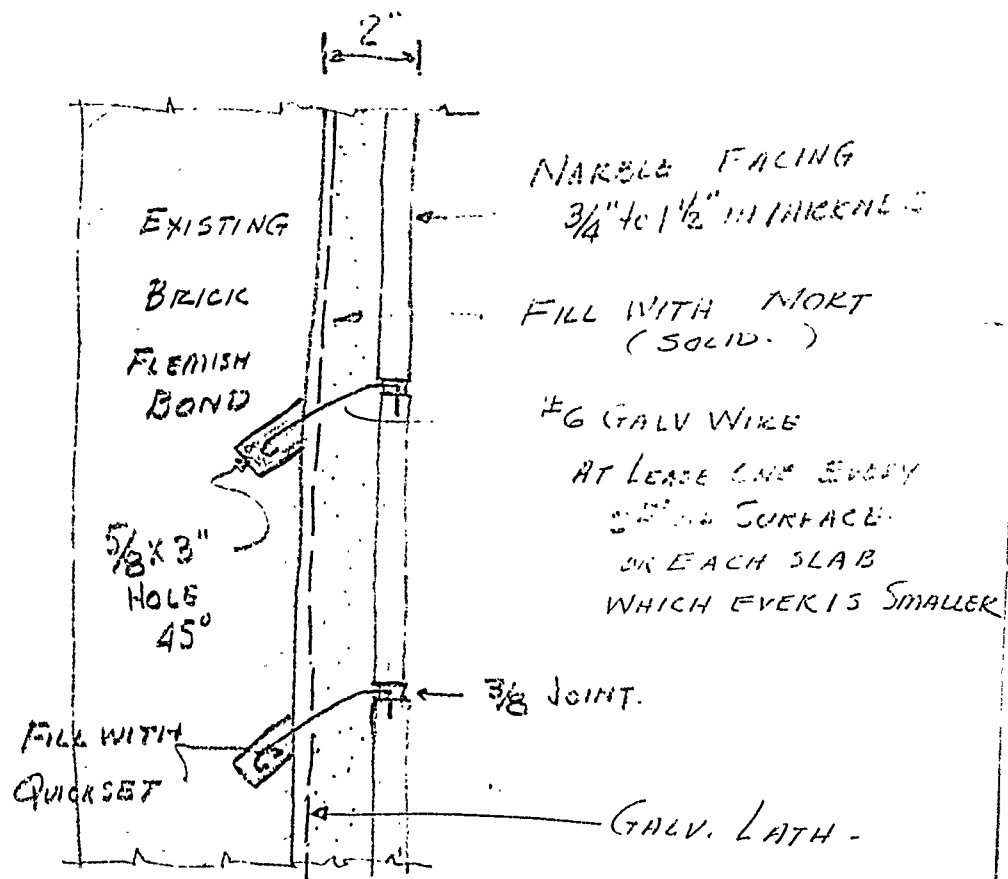 2"
EXISTING
BRICK
FLEMISH
BOND
NARBLE FACING
3/4" to 1 1/2" IN
FILL WITH MORT
(SOLID.)
#6 GALV WIRE
AT LEASE ONE EVERY
SURFACE
OR EACH SLAB
WHICH EVER IS SMALLER
5/8 X 3"
HOLE
45°
3/8 JOINT.
FILL WITH
QUICKSET
GALV. LATH -